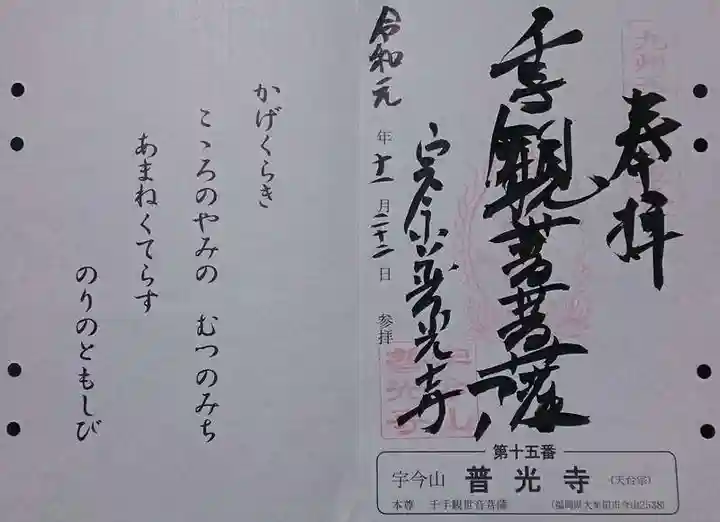 奉拝
千手観世音菩薩
宇今山普光寺
令和元年十一月二十二日 参拝
第十五番
宇今山 普光寺 (天台宗)
本尊 千手観世音菩薩 (福岡県大牟田市今山2538)
かげくらき
こゝろのやみの むつのみち
あまねくてらす
のりのともしび